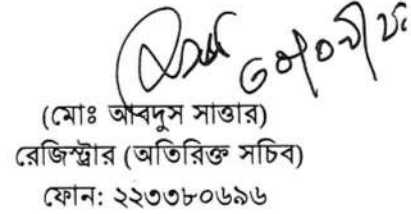 (মোঃ আবদুস সাত্তার)
রেজিস্ট্রার (অতিরিক্ত সচিব)
ফোন: ২২৩৩৮০৬৯৬